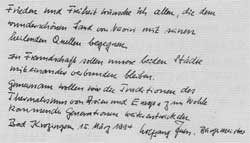 Frieden und Freiheit wünsche ich allen, die dem
wunderschönen Land von Naori mit seinen
heilenden Quellen begegnen.
In Freundschaft sollen unsere beiden Städte
miteinander verbunden bleiben.
Gemeinsam wollen wir die Traditionen des
Thermalismus von und zum Wohle
kommender Generationen weiterentwickeln
Bad Krozingen, 12 März